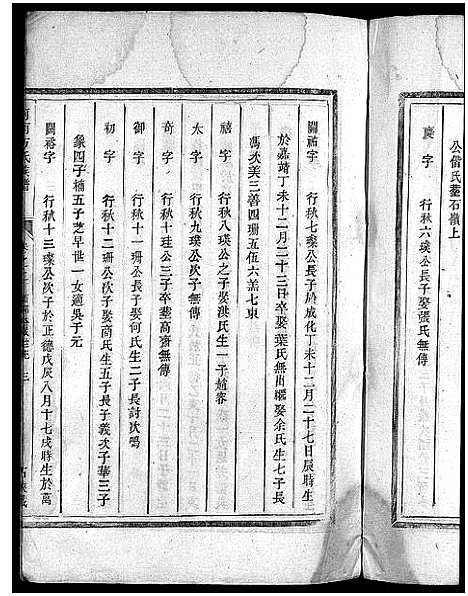 公偕氏塟石嶺上
慶字 行秋六璞公長子娶張氏無傳
關祐字 行秋七璨公長子於成化丁未十二月二十七日辰時生
於嘉靖丁未十二月二十三日卒娶葉氏無出繼娶余氏生七子長
馮次美三善四珊五伍六羔七東
禧字 行秋八瑛公之子娶洪氏生一子爐客
太字 行秋九璨公次子無傳
奇字 行秋十珪公三子卒塟高齋無傳
御字 行秋十一珊公長子娶何氏生二子長討次鳴
初字 行秋十二珊公次子娶商氏生五子長子義次子華三子
象四子橋五子芝早世一女適吳子元
關裕字 行秋十三璨公次子於正德戊辰八月十七戌時生於萬
方氏族譜